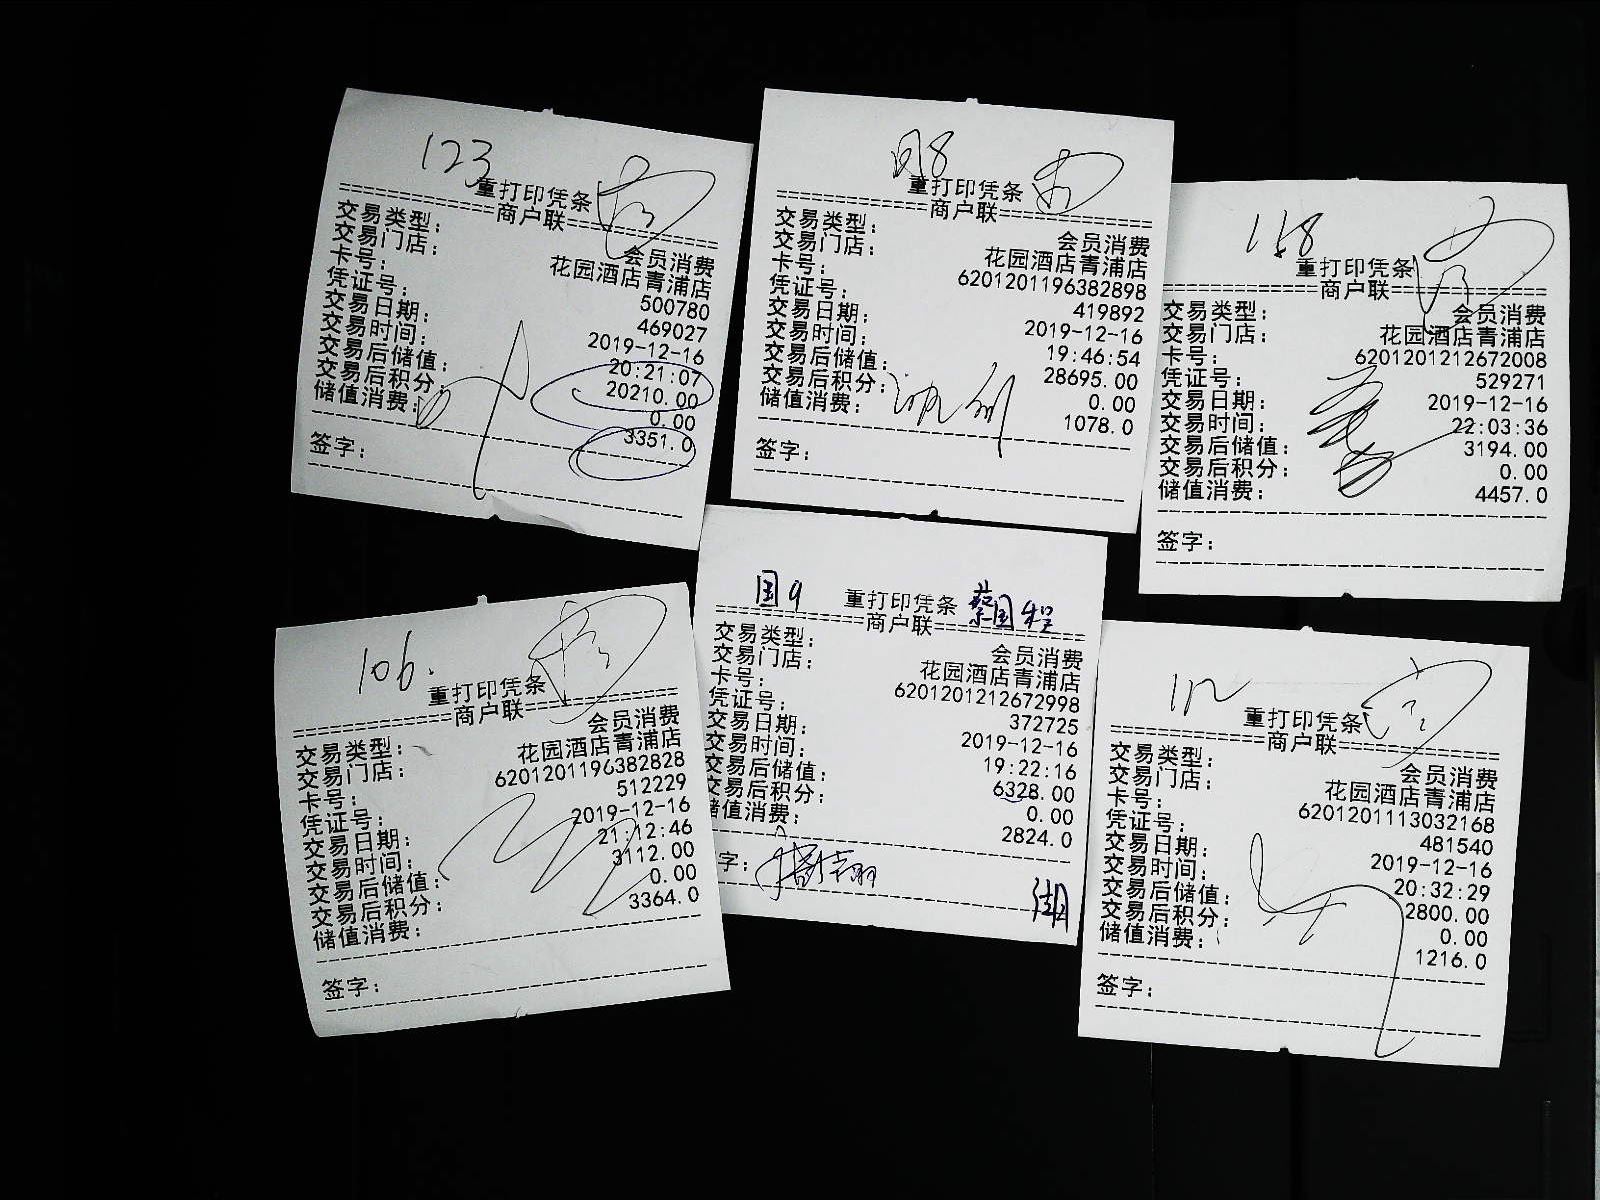 123
重打印凭条
商户联
交易类型: 会员消费
交易门店: 花园酒店青浦店
卡号: 500780
凭证号: 469027
交易日期: 2019-12-16
交易时间: 20:21:07
交易后储值: 20210.00
交易后积分: 0.00
储值消费: 3351.0
签字:
重打印凭条
商户联
交易类型: 会员消费
交易门店: 花园酒店青浦店
卡号: 6201201196382898
凭证号: 419892
交易日期: 2019-12-16
交易时间: 19:46:54
交易后储值: 28695.00
交易后积分: 0.00
储值消费: 1078.0
签字:
158
重打印凭条
商户联
交易类型: 会员消费
交易门店: 花园酒店青浦店
卡号: 6201201212672008
凭证号: 529271
交易日期: 2019-12-16
交易时间: 22:03:36
交易后储值: 3194.00
交易后积分: 0.00
储值消费: 4457.0
签字:
106.
重打印凭条
商户联
交易类型: 会员消费
交易门店: 花园酒店青浦店
卡号: 6201201196382828
凭证号: 512229
交易日期: 2019-12-16
交易时间: 21:12:46
交易后储值: 3112.00
交易后积分: 0.00
储值消费: 3364.0
签字:
国9 重打印凭条 蔡国程
商户联
交易类型: 会员消费
交易门店: 花园酒店青浦店
卡号: 6201201212672998
凭证号: 372725
交易日期: 2019-12-16
交易时间: 19:22:16
交易后储值: 6328.00
交易后积分: 0.00
储值消费: 2824.0
字:
112
重打印凭条
商户联
交易类型: 会员消费
交易门店: 花园酒店青浦店
卡号: 6201201113032168
凭证号: 481540
交易日期: 2019-12-16
交易时间: 20:32:29
交易后储值: 2800.00
交易后积分: 0.00
储值消费: 1216.0
签字: